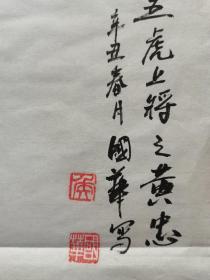 五虎上将之黄忠
辛丑春月國華写